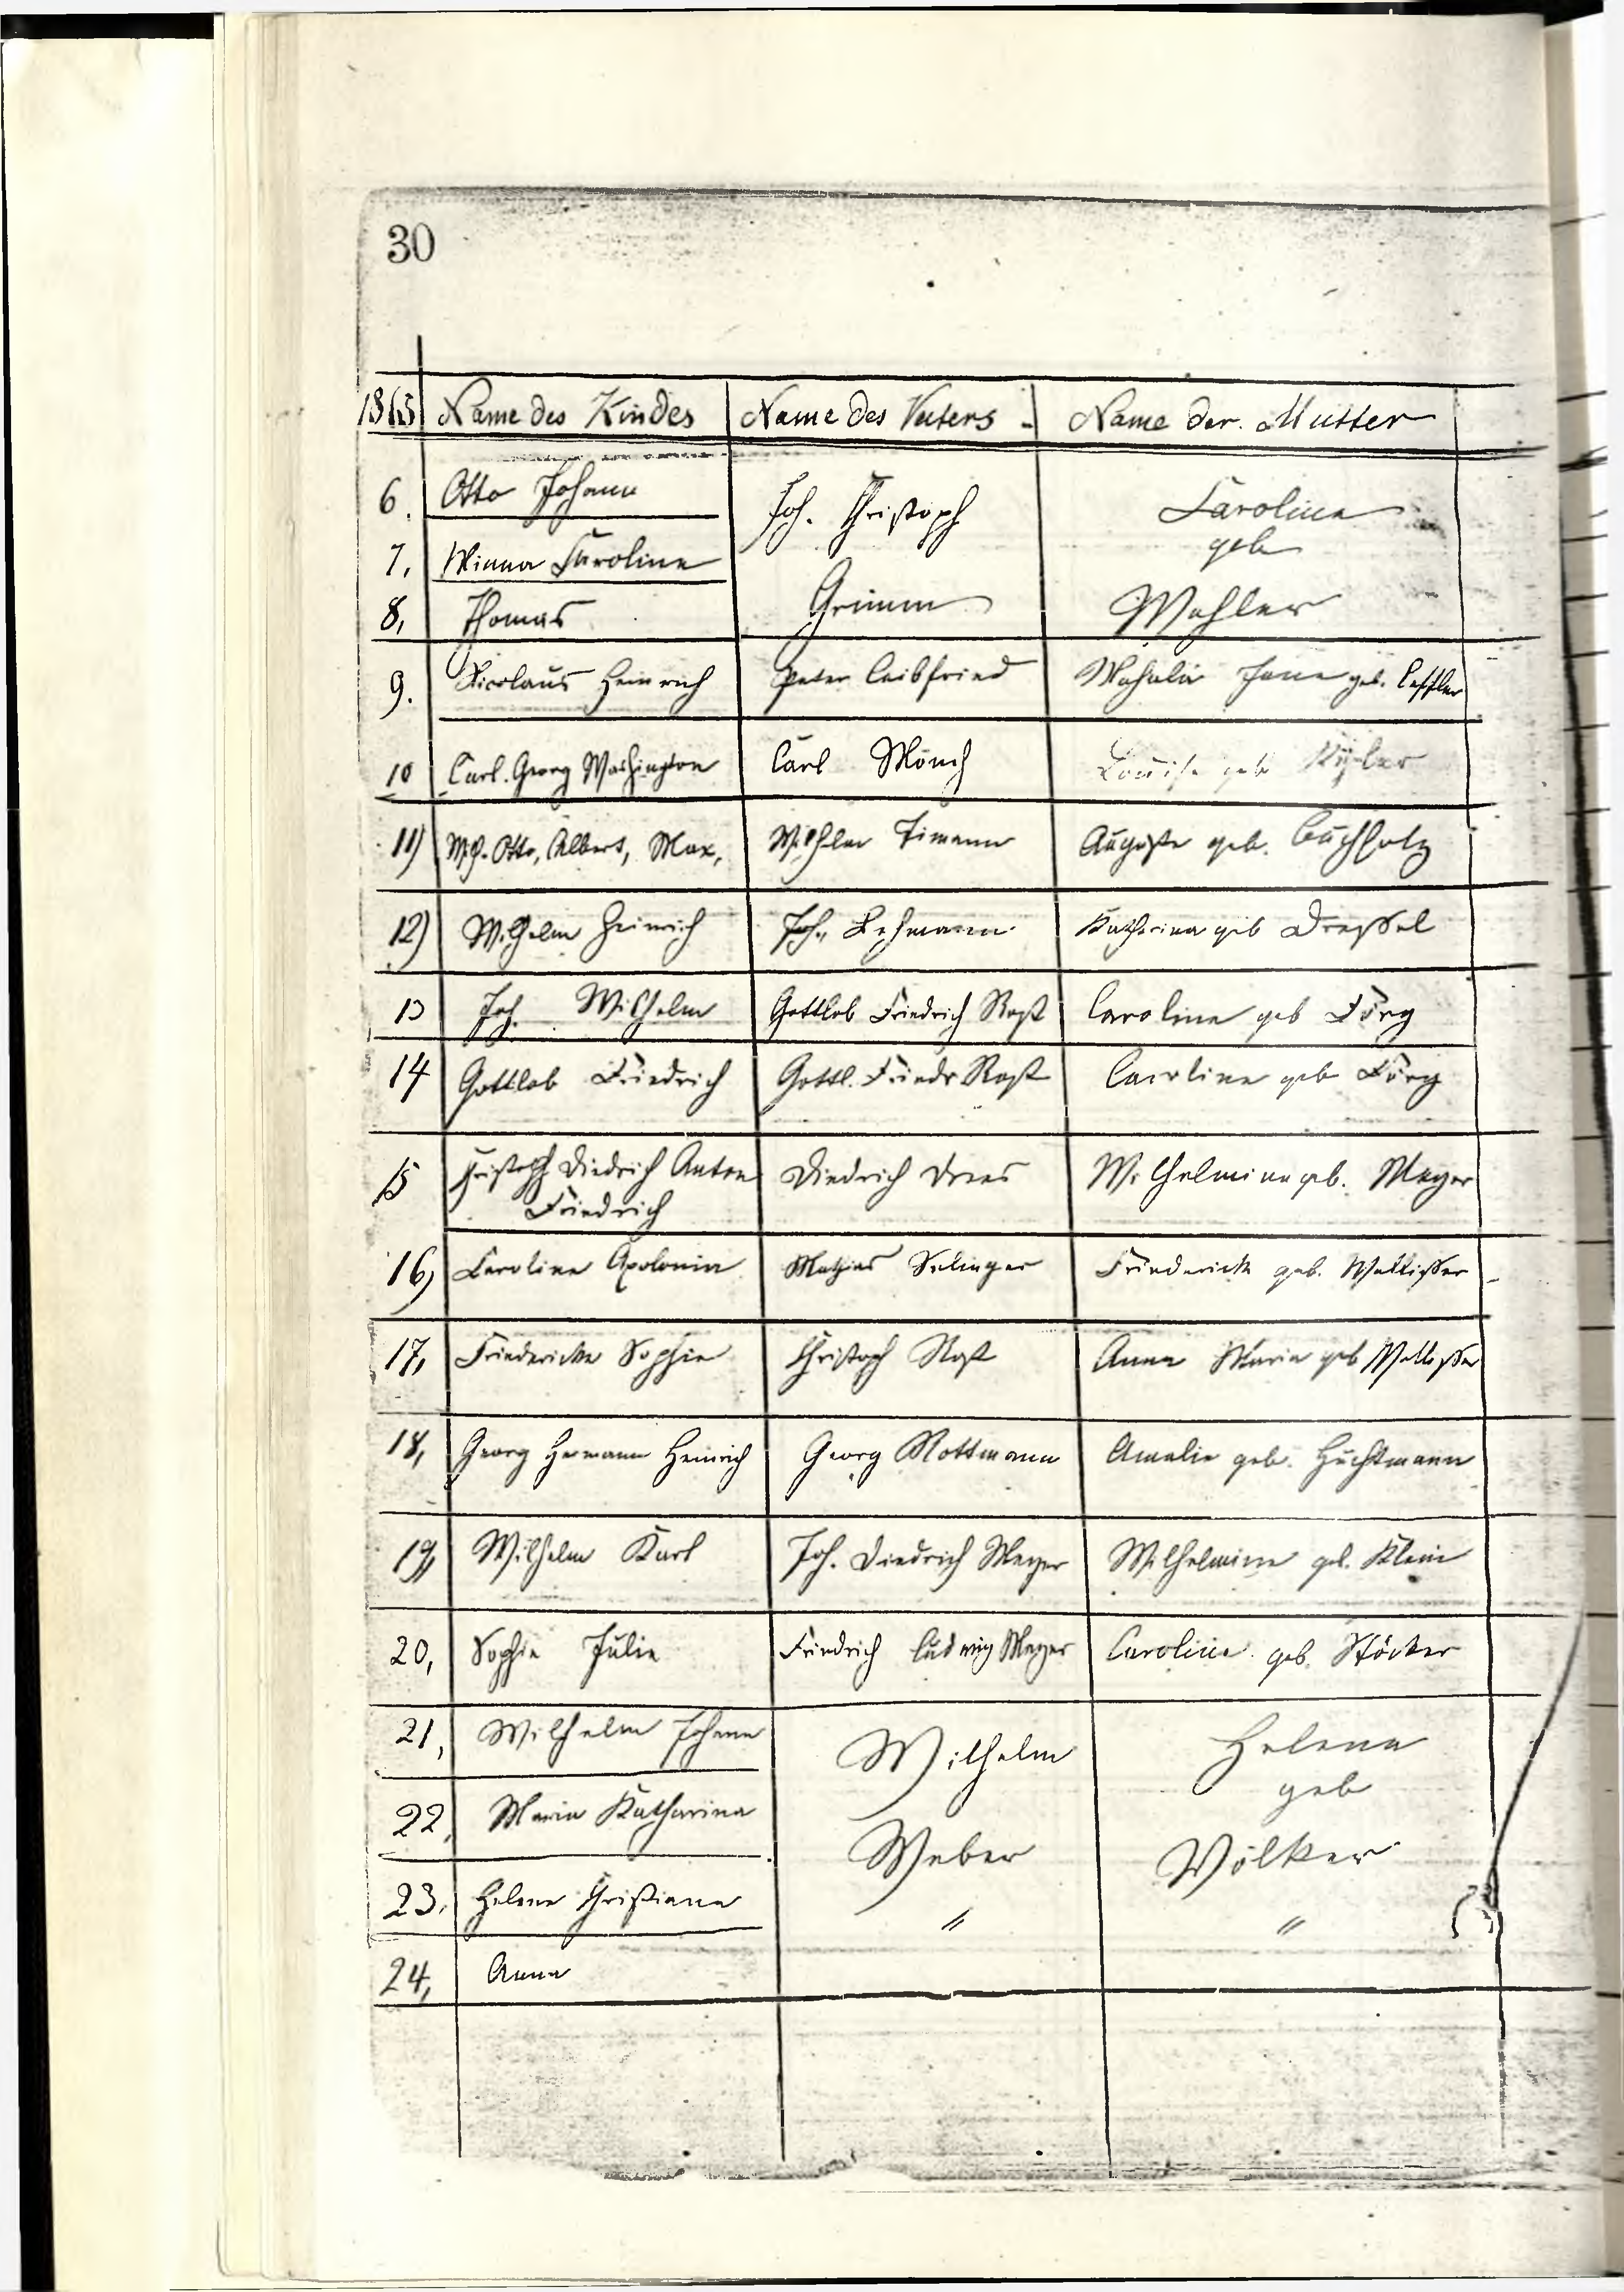 30
1865 Name des Kindes Name des Vaters Name der Mutter
6. Otto Johann Joh. Christoph Caroline
geb
7, Minna Caroline
8, Thomas Grimm Mahler
9. Nicolaus Heinrich Peter Leibfried Mahalia Jane geb. Leffler
10 Carl. Georg Washington Carl Mönch Louise geb
11) Wilh. Otto, Albert, Max, Wilhelm Timann Auguste geb. Buchholz
12) Wilhelm Heinrich Joh. Lehmann Katharina geb Dressel
13 Joh. Wilhelm Gottlob Friedrich Rost Caroline geb Förg
14 Gottlob Friedrich Gottl. Friedr Rost Caroline geb Förg
15 Christoph Diedrich Anton Diedrich Drees Wilhelmine geb. Meyer
Friedrich
16) Caroline Apolonia Mathias Selinger Friederick geb. Wallisser
17, Friedericke Sophie Christoph Rost Anna Maria geb Wallisser
18, Georg Hermann Heinrich Georg Rottmann Amalie geb. Huchtmann
19, Wilhelm Karl Joh. Diedrich Meyer Wilhelmine geb. Klein
20, Sophie Julie Friedrich Ludwig Meyer Caroline geb. Stöcker
21, Wilhelm Johann Wilhelm Helena
geb
22, Maria Katharina Weber Völker
23. Helene Christiane " "
24, Anna